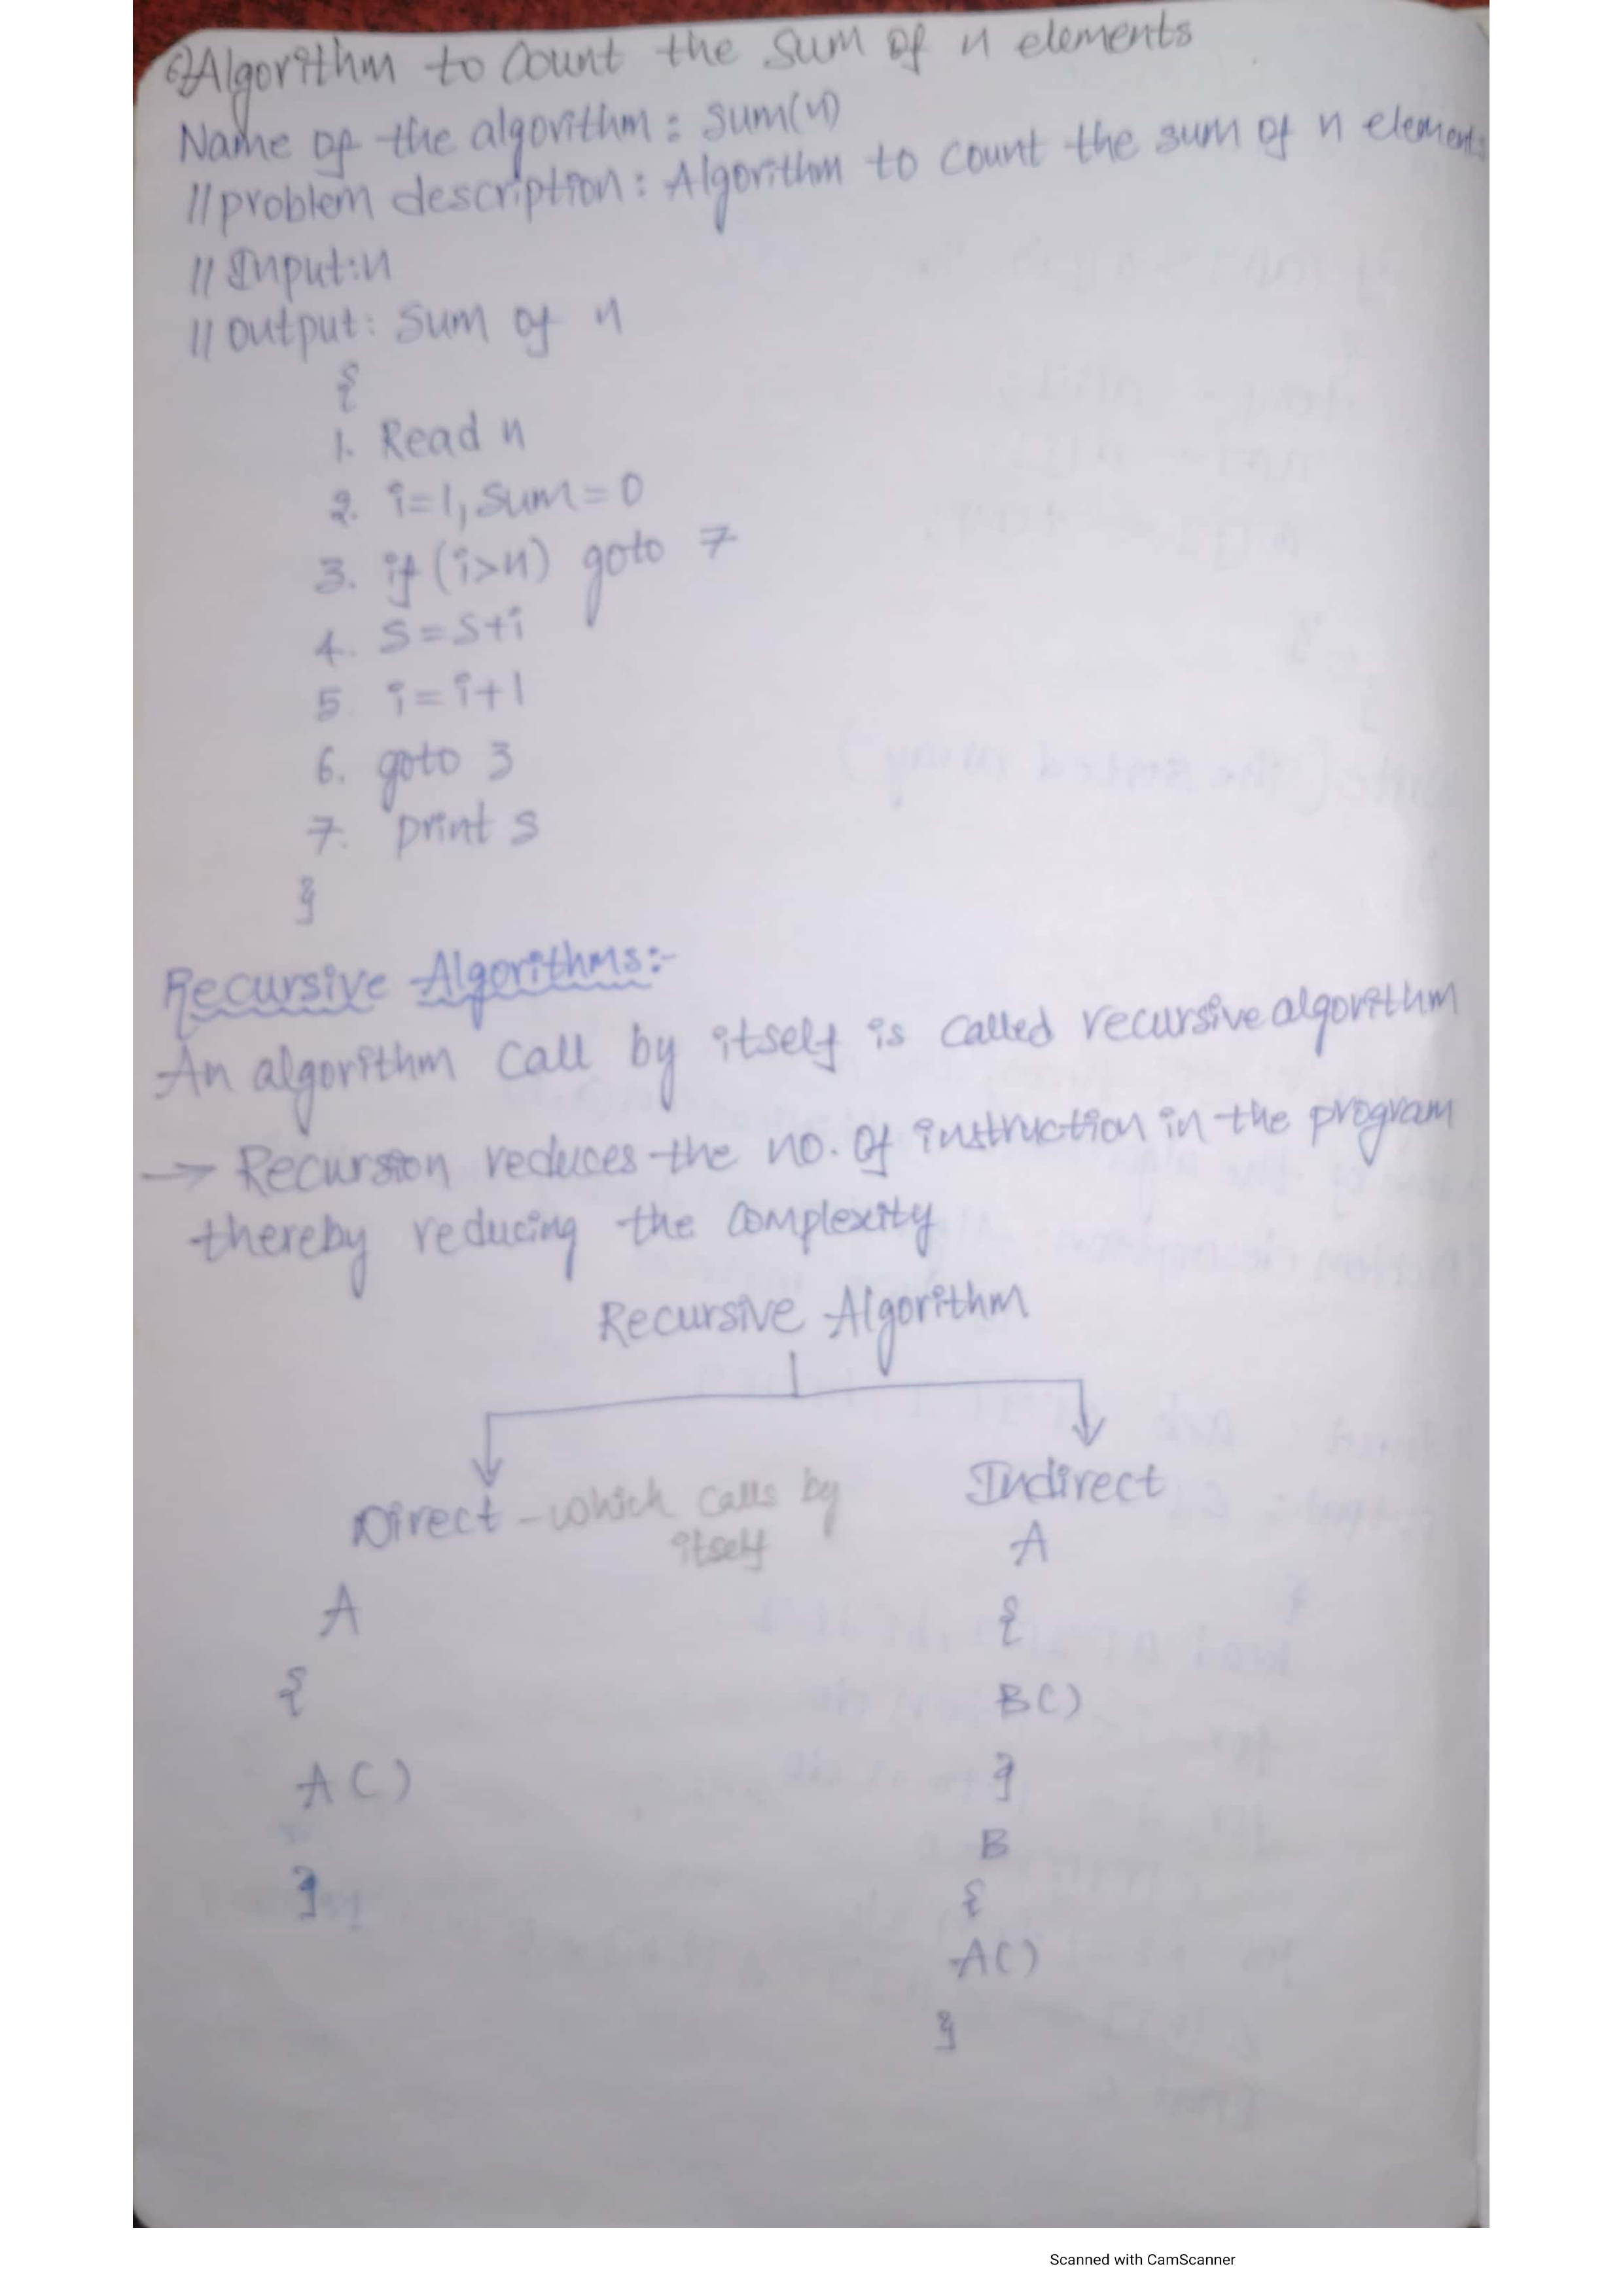 6) Algorithm to Count the Sum of n elements
Name of the algorithm : Sum(n)
//problem description : Algorithm to Count the sum of n elements
// Input: n
// output: Sum of n
{
1. Read n
2. i=1, Sum=0
3. if (i>n) goto 7
4. S=S+i
5. i=i+1
6. goto 3
7. print s
}
Recursive Algorithms:-
An algorithm Call by itself is Called recursive algorithm
→ Recursion reduces the no. of instruction in the program
thereby reducing the Complexity
Recursive Algorithm
Direct - which Calls by
itself
A
{
A()
}
Indirect
A
{
B()
}
B
{
A()
}
Scanned with CamScanner